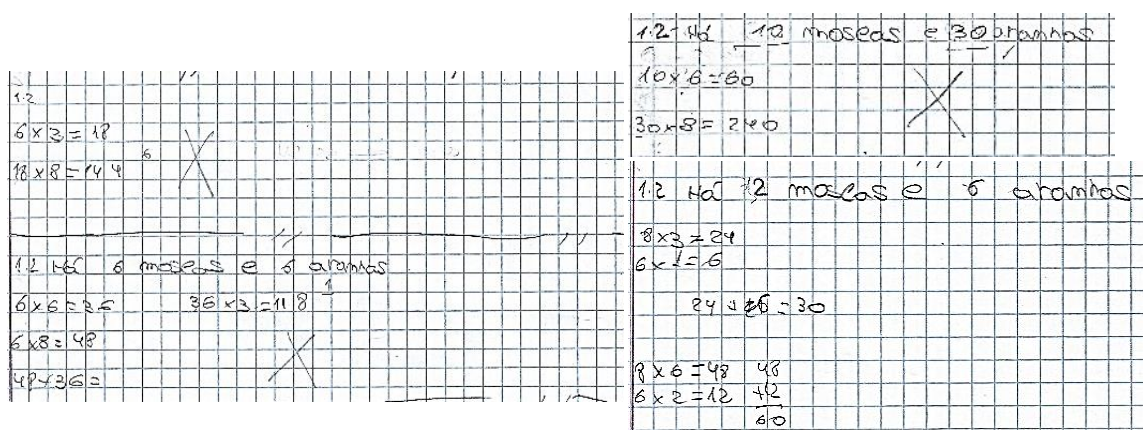 1.2
6 x 3 = 18
18 x 8 = 144
6
1.2 Há 6 moscas e 6 aranhas
6 x 6 = 36 36 x 3 = 118
1
6 x 8 = 48
48 + 36 =
1.2 - Há 10 moscas e 30 aranhas
10 x 6 = 60
30 x 8 = 240
1.2 Há 12 moscas e 6 aranhas
8 x 3 = 24
6 x 1 = 6
24 + 6 = 30
8 x 6 = 48 48
6 x 2 = 12 +12
60